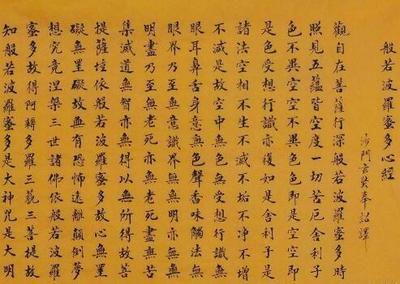 般若波羅蜜多心經
沙門玄奘奉詔譯
觀自在菩薩行深般若波羅蜜多時
照見五蘊皆空度一切苦厄舍利子
色不異空空不異色色即是空空即
是色受想行識亦復如是舍利子是
諸法空相不生不滅不垢不淨不增
不減是故空中無色無受想行識無
眼耳鼻舌身意無色聲香味觸法無
眼界乃至無意識界無無明亦無無
明盡乃至無老死亦無老死盡無苦
集滅道無智亦無得以無所得故菩
提薩埵依般若波羅蜜多故心無罣
礙無罣礙故無有恐怖遠離顛倒夢
想究竟涅槃三世諸佛依般若波羅
蜜多故得阿耨多羅三藐三菩提故
知般若波羅蜜多是大神咒是大明